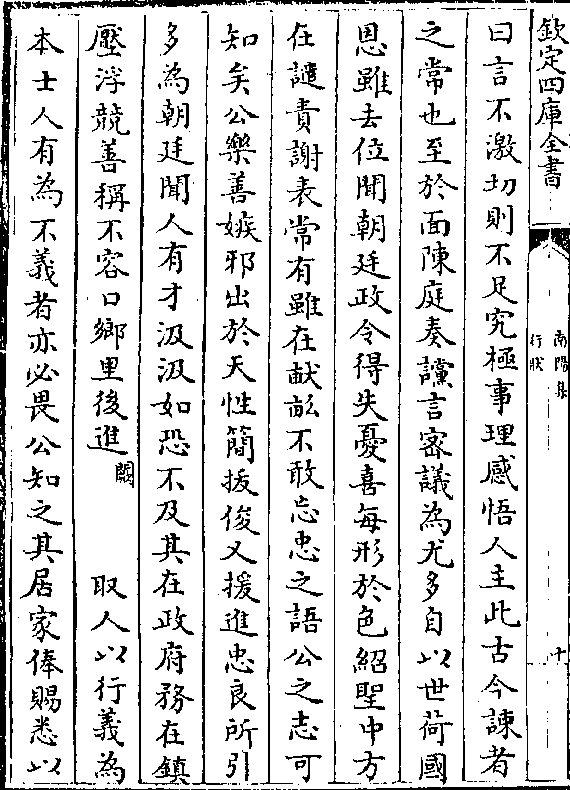 欽定四庫全書
南陽集
行狀
十
曰言不激切則不足究極事理感悟人主此古今諫者
之常也至於面陳庭奏讜言密議為尤多自以世荷國
恩雖去位聞朝廷政令得失憂喜每形於色紹聖中方
在譴責謝表常有雖在献畝不敢忘忠之語公之志可
知矣公樂善嫉邪出於天性簡拔俊乂援進忠良所引
多為朝廷聞人有才汲汲如恐不及其在政府務在鎮
壓浮競善稱不容口鄉里後進闕 取人以行義為
本士人有為不義者亦必畏公知之其居家俸賜悉以